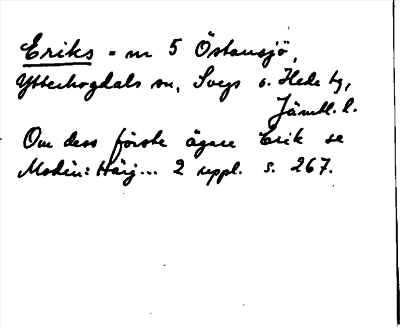 Eriks = m 5 Östansjö,
Ytterhogdals sn, Svegs o. Hede tg,
Jämtl. l.
Om dess förste ägare Erik se
Modin: Härj... 2 uppl. s. 267.